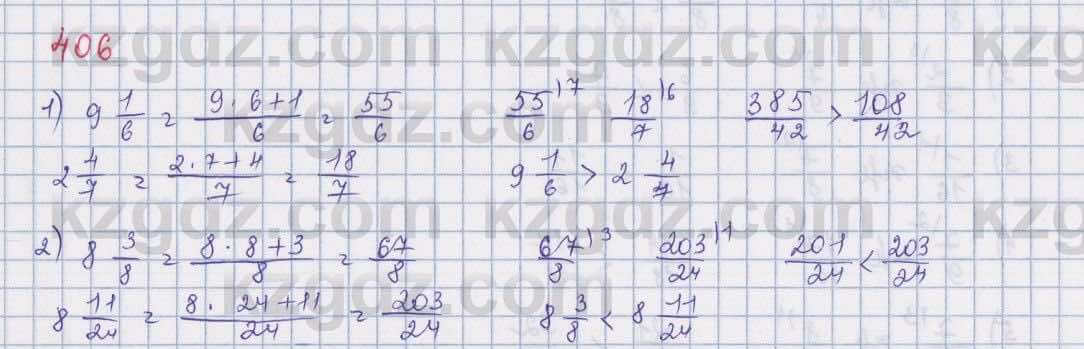 406
1) 9 1/6 = (9·6+1)/6 = 55/6   55/6 )7   18/7 )6   385/42 > 108/42
2 4/7 = (2·7+4)/7 = 18/7   9 1/6 > 2 4/7
2) 8 3/8 = (8·8+3)/8 = 67/8   67/8 )3   203/24 )1   201/24 < 203/24
8 11/24 = (8·24+11)/24 = 203/24   8 3/8 < 8 11/24
kzgdz.com kzgdz.com kzgdz.com
kzgdz.com kzgdz.com kzgdz.com
kzgdz.com kzgdz.com kzgdz.com